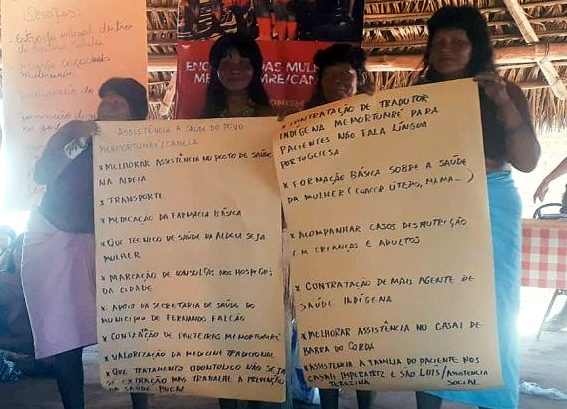 DESAFIOS:
ENCONTRO DAS MULH
MEMORTUMRE/CAN
ASSISTÊNCIA A SAÚDE DO POVO
MEMORTUMRE/CANELA
* MELHORAR ASSISTÊNCIA NO POSTO DE SAÚDE
NA ALDEIA
* TRANSPORTE
* MEDICAÇÃO DA FARMACIA BÁSICA
* QUE TECNICO DE SAÚDE DA ALDEIA SEJA
MULHER
* MARCAÇÃO DE CONSULTAS NOS HOSPITAIS
DA CIDADE
* APOIO DA SECRETARIA DE SAÚDE DO
MUNICÍPIO DE FERNANDO FALCÃO
* CONTRATAÇÃO DE PARTEIRAS MEMORTUMRÉ
* VALORIZAÇÃO DA MEDICINA TRADICIONAL
* QUE TRATAMENTO ODONTOLÓGICO NÃO SEJA
SÓ EXTRAÇÃO MAS TRABALHE A PREVENÇÃO
DA SAÚDE BUCAL
* CONTRATAÇÃO DE TRADUTOR
INDÍGENA MEMORTUMRÉ PARA
PACIENTES NÃO FALA LÍNGUA
PORTUGUESA
* FORMAÇÃO BÁSICA SOBRE A SAÚDE
DA MULHER (CÂNCER ÚTERO, MAMA...)
* ACOMPANHAR CASOS DESNUTRIÇÃO
EM CRIANÇAS E ADULTOS
* CONTRATAÇÃO DE MAIS AGENTE DE
SAÚDE INDÍGENA
* MELHORAR ASSISTÊNCIA NO CASAI DE
BARRA DO CORDA
* ASSISTENCIA A FAMILIA DO PACIENTE NOS
CASAIS IMPERATRIZ E SÃO LUIS/ASSISTENCIA
TEREZINA SOCIAL